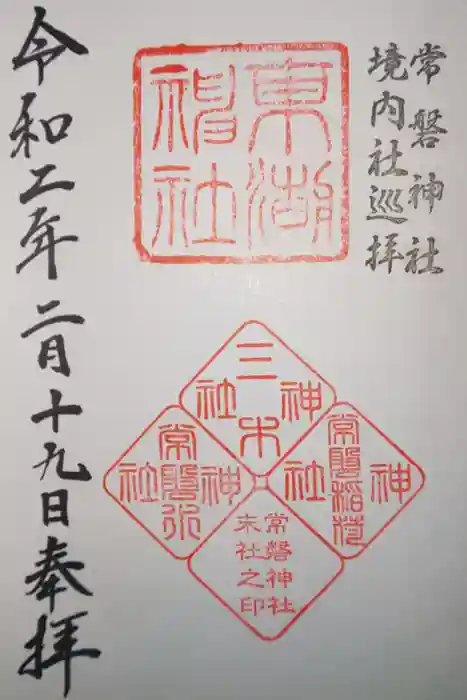 常磐神社
境内社巡拝
東湖
神社
三木
神社
常磐稲荷
神社
常磐
神社
常磐神社
末社之印
令和二年二月十九日奉拝